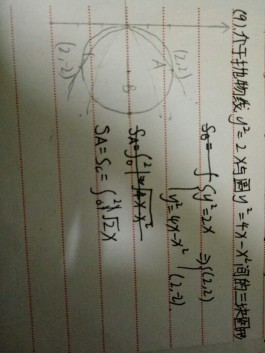 (9)介于抛物线y²=2x与圆y²=4x-x²间的三块图形
(2,2)
A
B
(2,-2)
S_B=
{y²=2x
y²=4x-x² ⇒ (2,2)
(2,-2).
S_A=∫₀²
4x-x²
S_A=S_C=∫₀² √2x